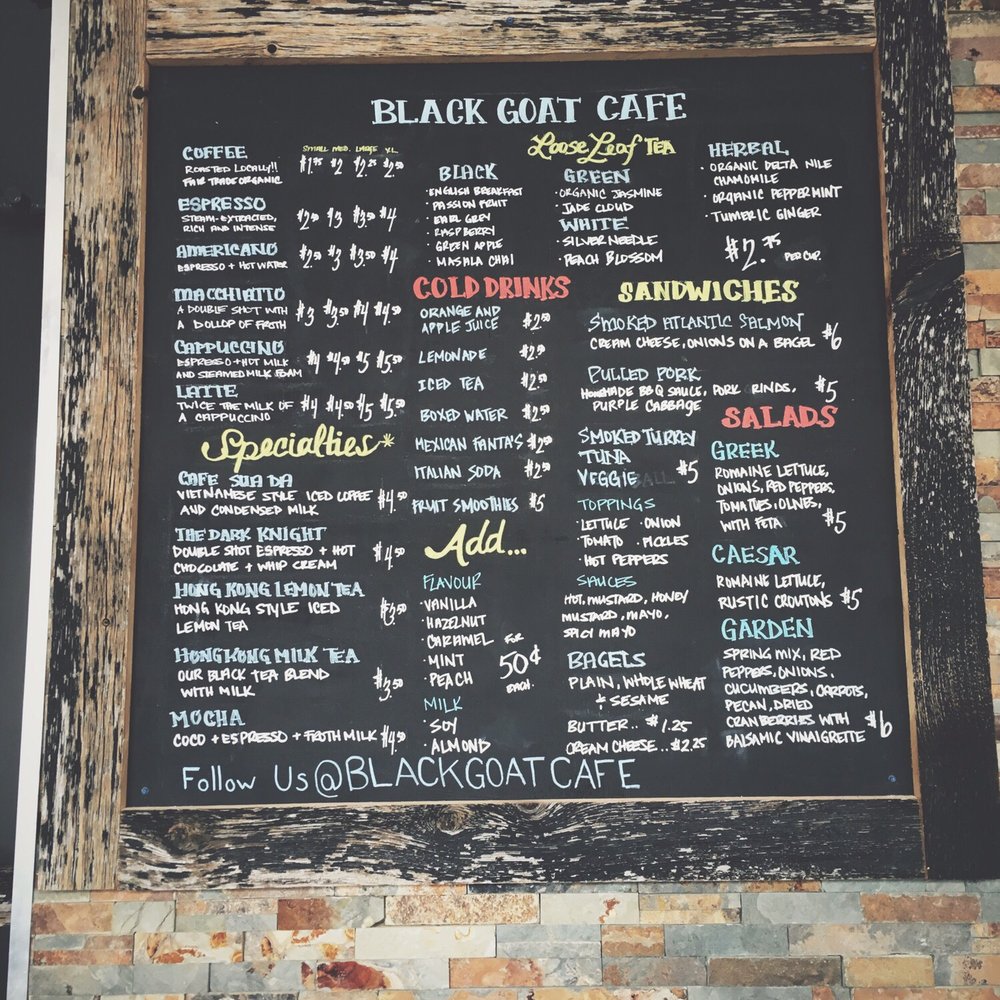 BLACK GOAT CAFE
COFFEE
SMALL MED. LARGE X.L.
ROASTED LOCALLY!!
FAIR TRADE ORGANIC
$1.75 $2 $2.25 $2.50
ESPRESSO
STEAM-EXTRACTED,
RICH AND INTENSE
$2.50 $3 $3.50 $4
AMERICANO
ESPRESSO + HOT WATER
$2.50 $3 $3.50 $4
MACCHIATTO
A DOUBLE SHOT WITH
A DOLLOP OF FROTH
$3 $3.50 $4 $4.50
CAPPUCCINO
ESPRESSO + HOT MILK
AND STEAMED MILK FOAM
$4 $4.50 $5 $5.50
LATTE
TWICE THE MILK OF
A CAPPUCCINO
$4 $4.50 $5 $5.50
Specialties*
CAFE SUA DA
VIETNAMESE STYLE ICED COFFEE
AND CONDENSED MILK
$4.50
THE DARK KNIGHT
DOUBLE SHOT ESPRESSO + HOT
CHOCOLATE + WHIP CREAM
$4.50
HONG KONG LEMON TEA
HONG KONG STYLE ICED
LEMON TEA
$3.50
HONG KONG MILK TEA
OUR BLACK TEA BLEND
WITH MILK
$3.50
MOCHA
COCO + ESPRESSO + FROTH MILK $4.50
Loose Leaf TEA
BLACK
· ENGLISH BREAKFAST
· PASSION FRUIT
· EARL GREY
· RASPBERRY
· GREEN APPLE
· MASALA CHAI
GREEN
· ORGANIC JASMINE
· JADE CLOUD
WHITE
· SILVER NEEDLE
· PEACH BLOSSOM
HERBAL
· ORGANIC DELTA NILE
CHAMOMILE
· ORGANIC PEPPERMINT
· TUMERIC GINGER
$2.75 PER CUP.
COLD DRINKS
ORANGE AND
APPLE JUICE $2.50
LEMONADE $2.50
ICED TEA $2.50
BOXED WATER $2.50
MEXICAN FANTA'S $2.50
ITALIAN SODA $2.50
FRUIT SMOOTHIES $5
Add...
FLAVOUR
· VANILLA
· HAZELNUT
· CARAMEL
· MINT
· PEACH
FOR
50¢
EACH.
MILK
· SOY
· ALMOND
SANDWICHES
SMOKED ATLANTIC SALMON
CREAM CHEESE, ONIONS ON A BAGEL $6
PULLED PORK
HOMEMADE BBQ SAUCE, PORK RINDS,
PURPLE CABBAGE
$5
SMOKED TURKEY
TUNA
VEGGIE $5
TOPPINGS
· LETTUCE · ONION
· TOMATO · PICKLES
· HOT PEPPERS
SAUCES
HOT, MUSTARD, HONEY
MUSTARD, MAYO,
SPICY MAYO
BAGELS
PLAIN, WHOLE WHEAT
+ SESAME
BUTTER.. $1.25
CREAM CHEESE...$2.25
SALADS
GREEK
ROMAINE LETTUCE,
ONIONS, RED PEPPERS,
TOMATOES, OLIVES,
WITH FETA $5
CAESAR
ROMAINE LETTUCE,
RUSTIC CROUTONS $5
GARDEN
SPRING MIX, RED
PEPPERS, ONIONS,
CUCUMBERS, CARROTS,
PECAN, DRIED
CRANBERRIES WITH
BALSAMIC VINAIGRETTE $6
FOLLOW US @BLACKGOATCAFE